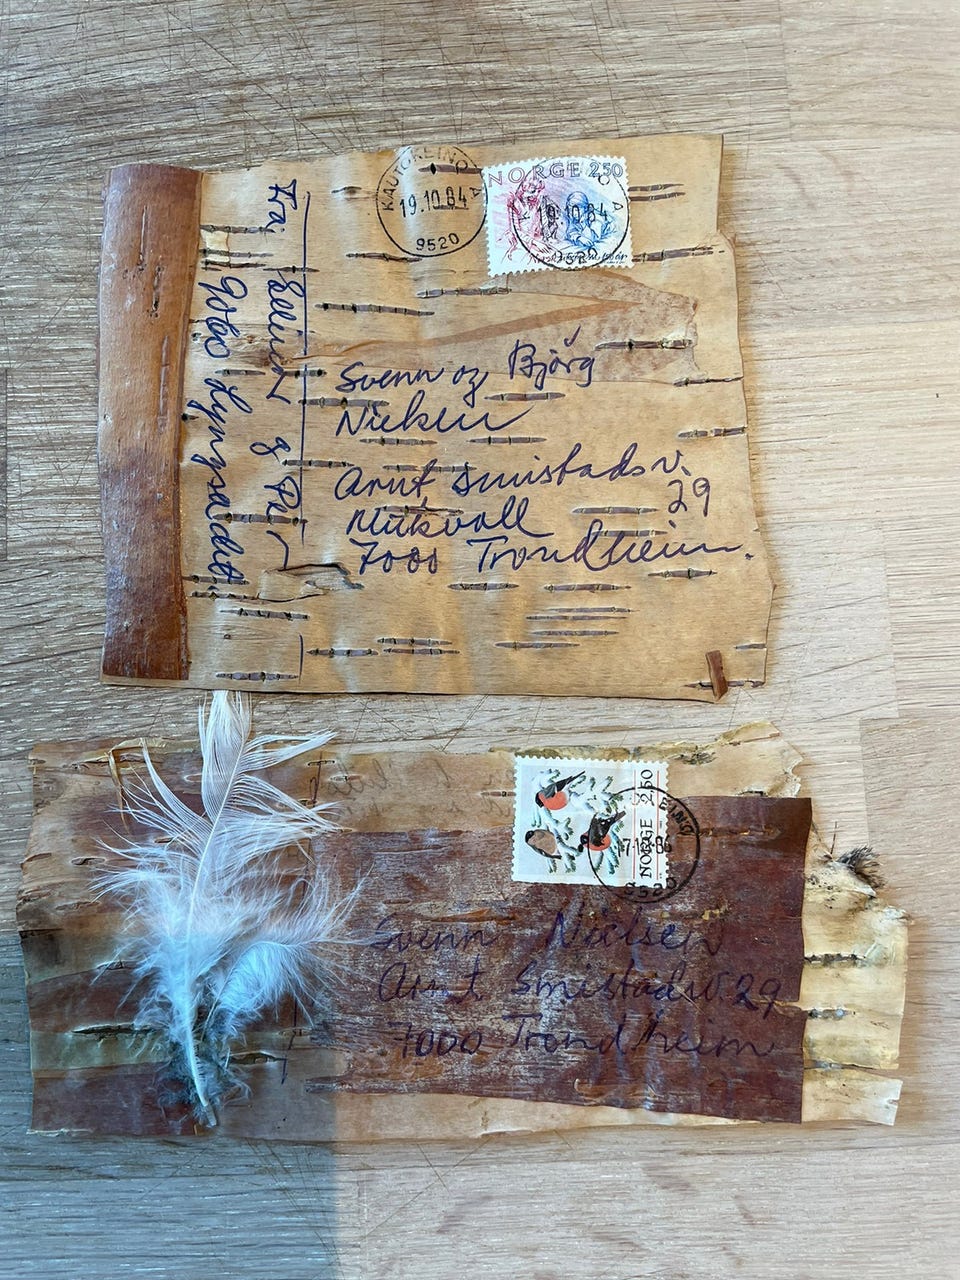 KAUTOKEINO
A
19.10.84
9520
NORGE 2.50
19.10.84
A
9520
Fra Ellinor og Per
9060 Lyngseidet
Svenn og Bjørg
Nielsen
Arnt Smistads v.
29
7000 Trondheim.
NORGE 2.50
EINO
86
9520
Svenn Nielsen
Arnt Smistadsv. 29
7000 Trondheim